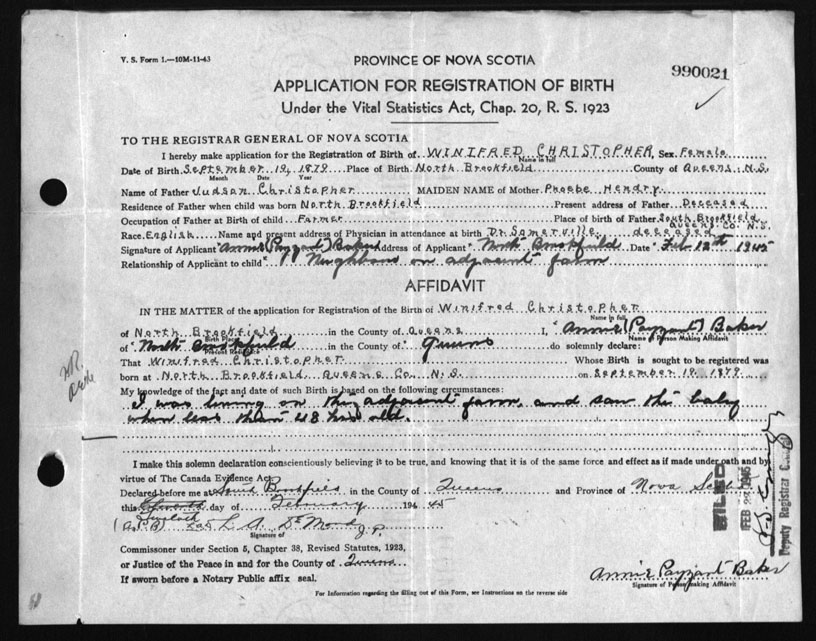 V. S. Form 1.—10M-11-43
PROVINCE OF NOVA SCOTIA
990021
APPLICATION FOR REGISTRATION OF BIRTH
Under the Vital Statistics Act, Chap. 20, R. S. 1923
TO THE REGISTRAR GENERAL OF NOVA SCOTIA
I hereby make application for the Registration of Birth of WINIFRED CHRISTOPHER, Sex Female
Name in full
Date of Birth September 19, 1879 Place of Birth North Brookfield County of Queens. N.S.
Month Date Year
Name of Father Judson Christopher MAIDEN NAME of Mother Phoebe Hendry.
Residence of Father when child was born North Brookfield Present address of Father Deceased
Occupation of Father at Birth of child Farmer Place of birth of Father South Brookfield
Queens Co. N.S.
Race English Name and present address of Physician in attendance at birth Dr. Somerville. deceased
Signature of Applicant Annie (Payzant) Baker Address of Applicant North Brookfield Date Feb 12th 1945
Relationship of Applicant to child Neighbour on adjacent farm
AFFIDAVIT
IN THE MATTER of the application for Registration of the Birth of Winifred Christopher
Name in full
of North Brookfield in the County of Queens I, Annie (Payzant) Baker
Birth Place Name of Person Making Affidavit
of North Brookfield in the County of Queens do solemnly declare:
Present Residence
That Winifred Christopher Whose Birth is sought to be registered was
born at North Brookfield, Queens Co., N.S. on September 19, 1879.
My knowledge of the fact and date of such Birth is based on the following circumstances:
I was living on the adjacent farm, and saw this baby
when less than 48 hrs old.
I make this solemn declaration conscientiously believing it to be true, and knowing that it is of the same force and effect as if made under oath and by
virtue of The Canada Evidence Act
Declared before me at in the County of Queens and Province of Nova Scotia
this day of February 1945
L. A. DeMone J.P.
Signature of
Commissioner under Section 5, Chapter 38, Revised Statutes, 1923,
or Justice of the Peace in and for the County of Queens
If sworn before a Notary Public affix seal.
Annie Payzant Baker
Signature of Person making Affidavit
For Information regarding the filling out of this Form, see Instructions on the reverse side
FILED
FEB 1945
Deputy Registrar